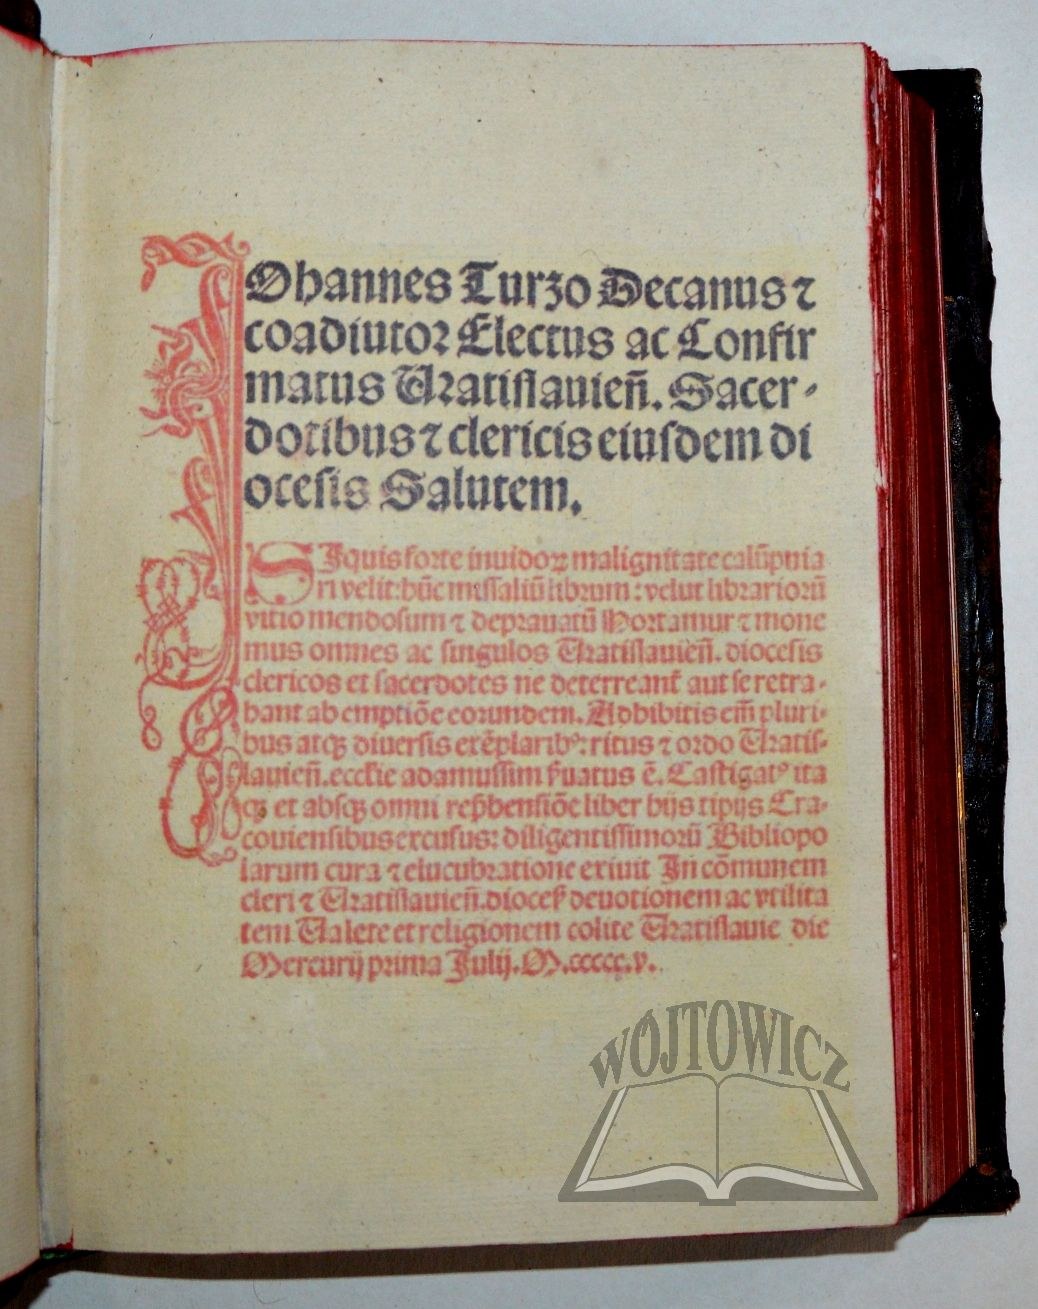 JOhannes Turzo Decanus ⁊
coadiutoꝛ Electus ac Confir
matus Uꝛatiſlauien̄. Sacer-
dotibus ⁊ clericis eiuſdem di
oceſis Salutem.
SIquis foꝛte inuidoꝝ malignitate calūpnia
ri velit: hūc miſſaliū libꝛum: velut libꝛarioꝛū
vitio mendoſum ⁊ depꝛauatū Hoꝛtamur ⁊ mone
mus omnes ac ſingulos Uꝛatiſlauien̄. dioceſis
clericos et ſacerdotes ne deterreant̄ aut ſe retra-
hant ab emptiōe eoꝛundem. Adhibitis em̄ pluri-
bus atqꝫ diuerſis exēplaribꝰ: ritus ⁊ oꝛdo Uꝛatiſ-
lauien̄. eccƚie adamuſſim ẜuatus ē. Caſtigatꝰ ita
qꝫ et abſqꝫ omni rep̄henſiōe liber hijs tipijs Cra-
couienſibus excuſus: diligentiſſimoꝛū Bibliopo
larum cura ⁊ elucubꝛatione exiuit In cōmunem
cleri ⁊ Uꝛatiſlauien̄. dioceſ̄ deuotionem ac vtilita
tem Ualete et religionem colite Uꝛatiſlauie die
Mercurij pꝛima Julij. M.ccccc.v.
WÓJTOWICZ